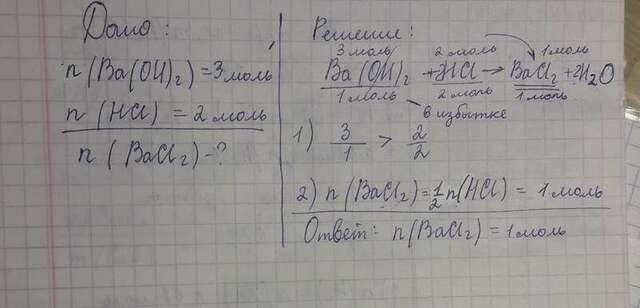 Дано:
n(Ba(OH)₂) = 3 моль
n(HCl) = 2 моль
n(BaCl₂) - ?
Решение:
3 моль 2 моль 1 моль
Ba(OH)₂ + 2HCl → BaCl₂ + 2H₂O
1 моль 2 моль 1 моль
в избытке
1) 3/1 > 2/2
2) n(BaCl₂) = 1/2 n(HCl) = 1 моль
Ответ: n(BaCl₂) = 1 моль